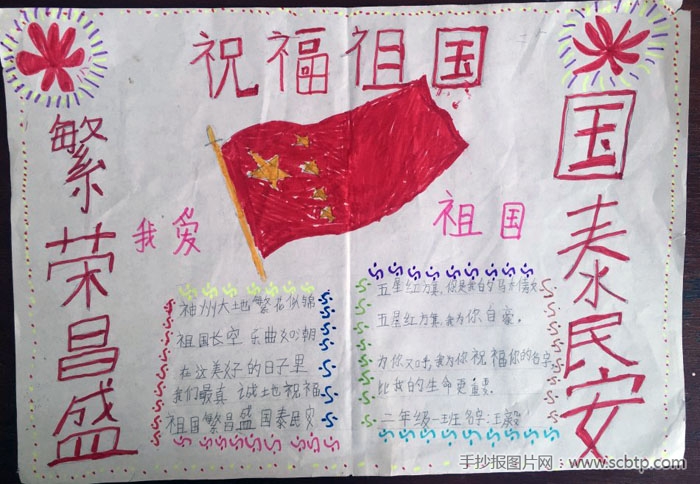 祝福祖国
繁荣昌盛
国泰民安
我爱 祖国
神州大地繁花似锦
祖国长空 乐曲如潮
在这美好的日子里
我们最真诚地祝福
祖国繁昌盛国泰民安
五星红旗,你是我的
五星红旗,我为你自豪。
为你欢呼,我为你祝福你的名字
比我的生命更重要。
二年级一班名字:王毅
手抄报图片网:www.scbtp.com